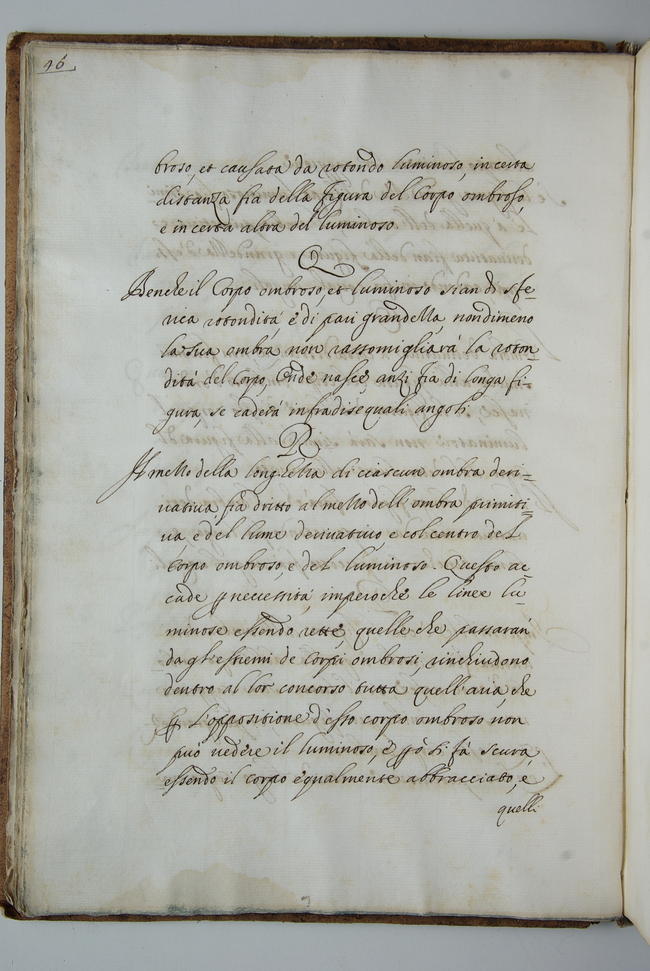 96
broso, et causata da rotondo luminoso, in certa
distanza fia della figura del Corpo ombroso,
e in certa altra del luminoso
Q
Benche il Corpo ombroso, et luminoso sian di sfe=
rica rotondità, e di pari grandezza, nondimeno
la sua ombra non rassomigliarà la roton=
dità del Corpo, onde nasce, anzi fia di longa fi=
gura, se caderà infra disequali angoli.
R
Il mezzo della longhezza di ciascun ombra deri=
vativa fia dritto al mezzo dell'ombra primiti=
va, e del lume derivativo, e col centro del
Corpo ombroso, e del luminoso. Questo ac=
cade p necessità, imperoche le linee lu=
minose essendo rette, quelle che passaran
da gl'estremi de Corpi ombrosi, rinchiudono
dentro al lor concorso tutta quell'aria, che
p l'oppositione d'esso corpo ombroso non
può vedere il luminoso, e p ò si fà scura,
essendo il corpo egualmente abbracciato, e
quelli